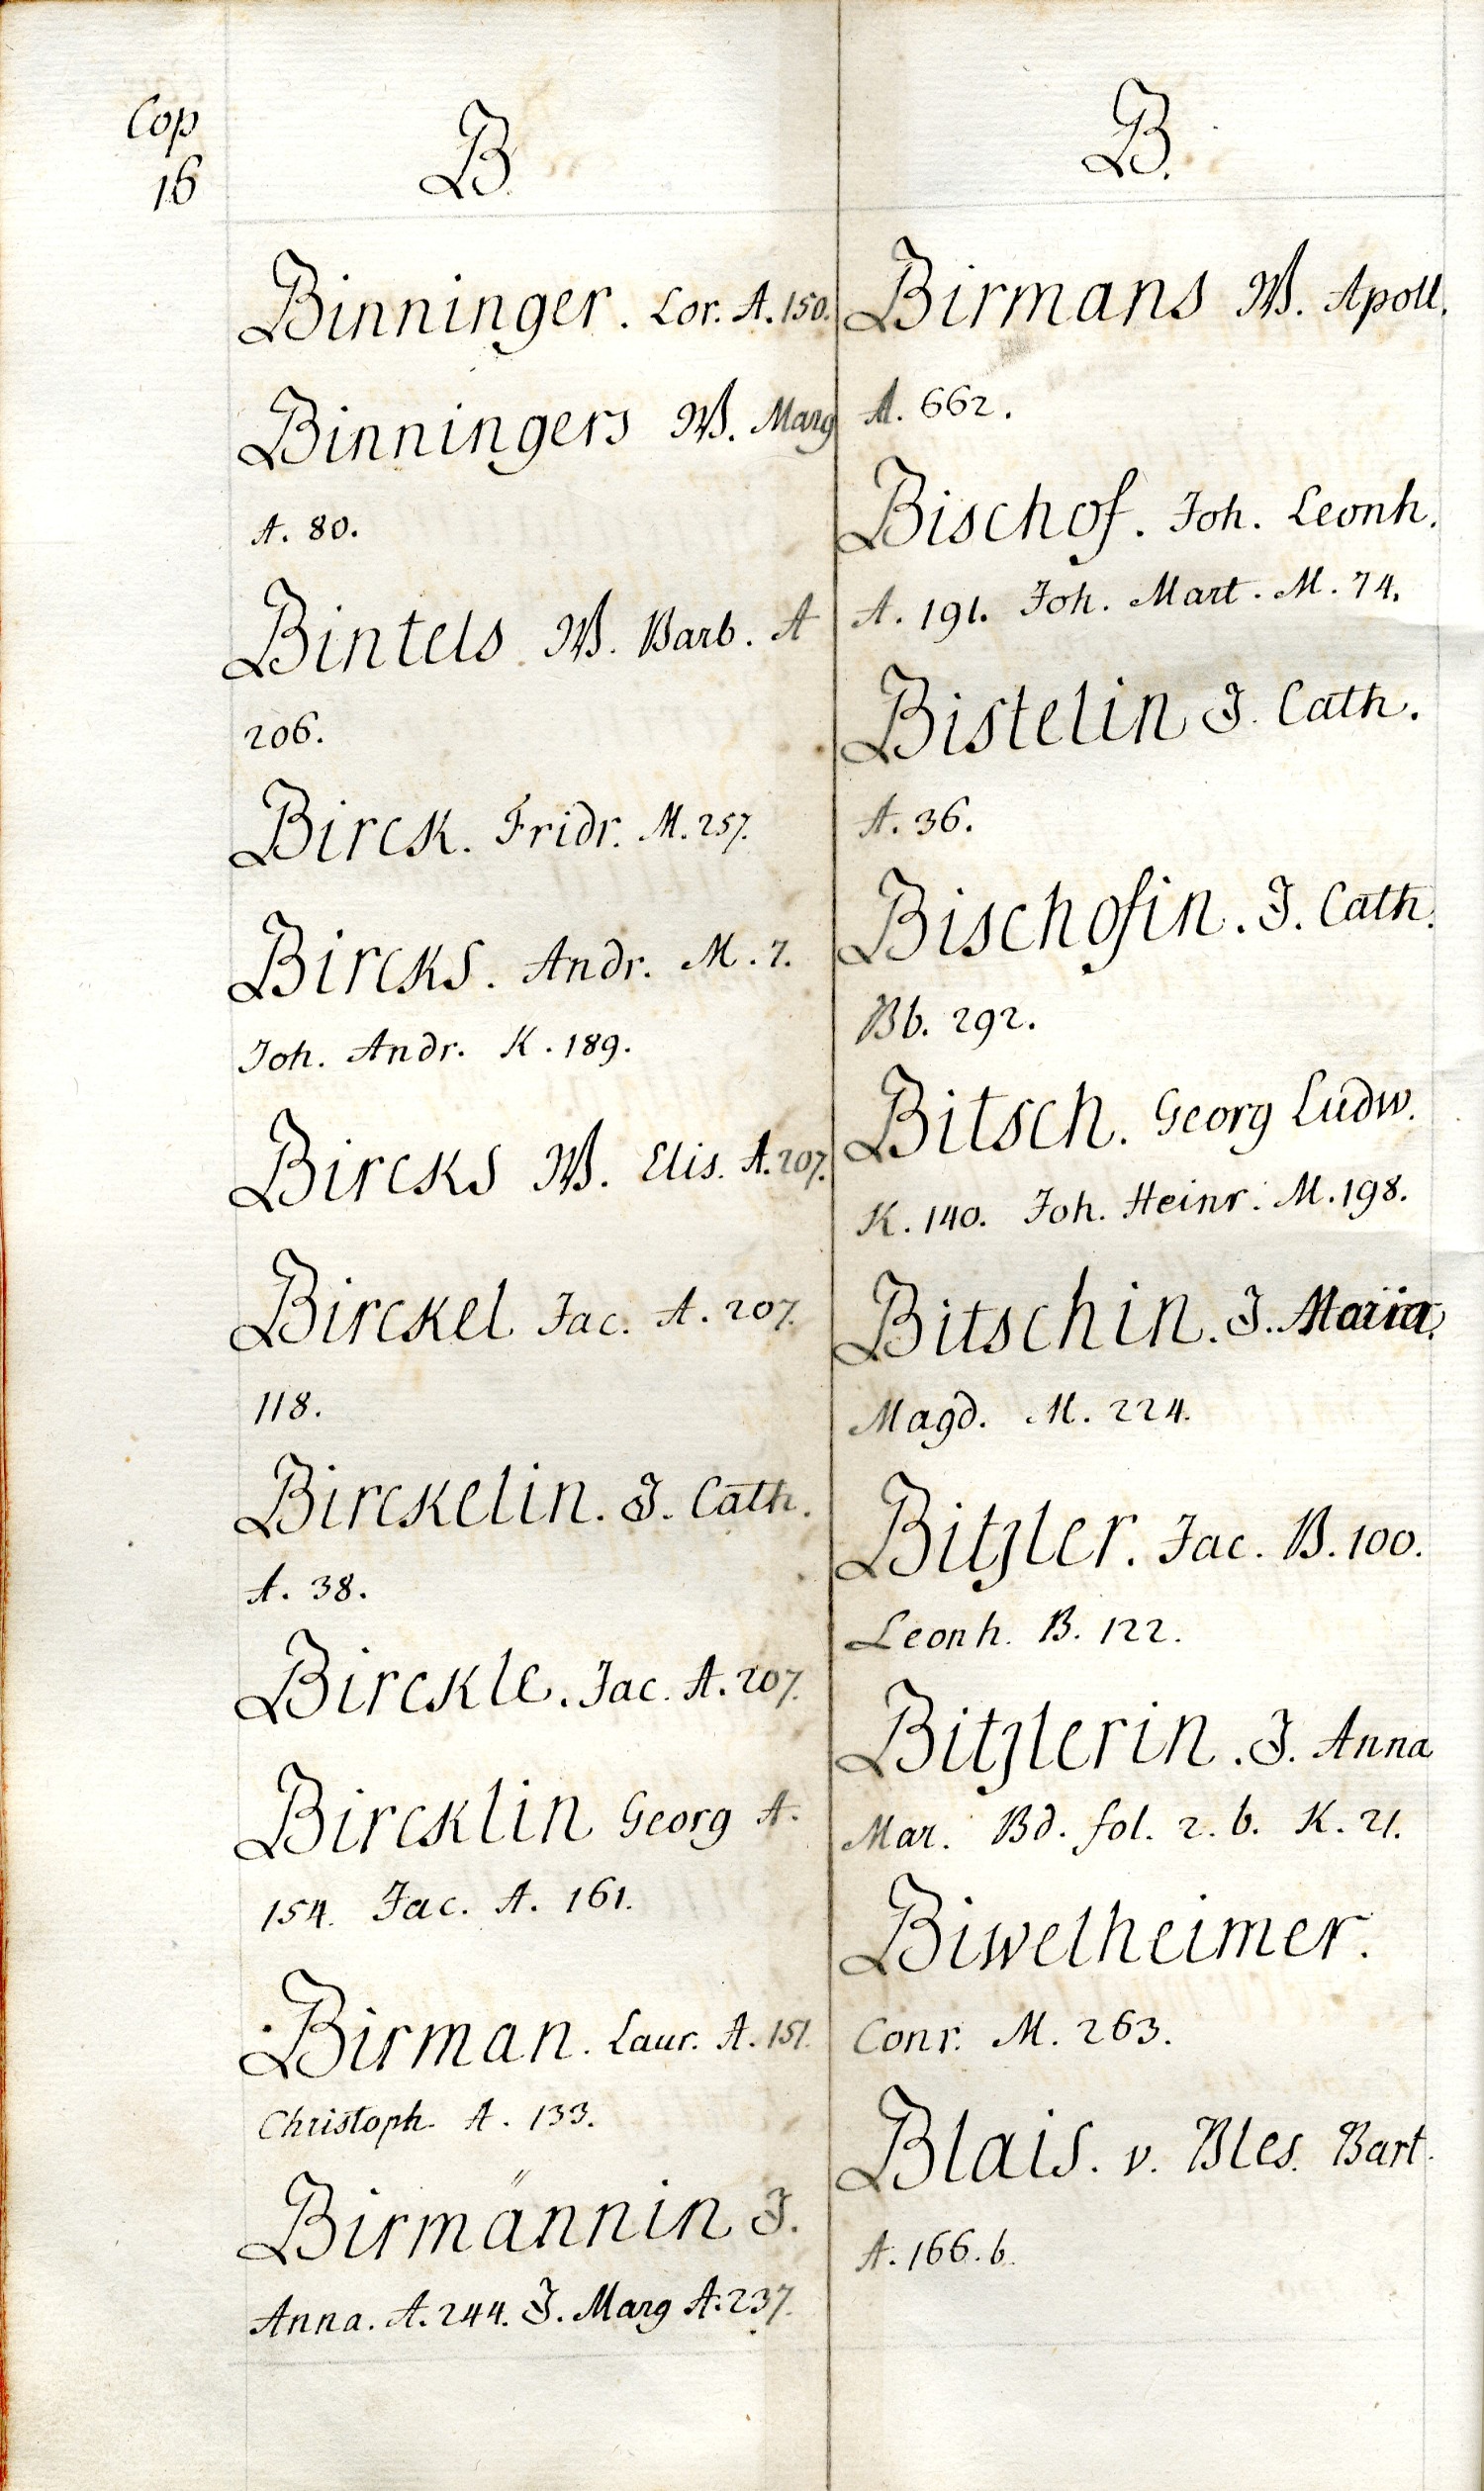 Cop
16
B.
Binninger. Lor. A. 150.
Binningers W. Marg
A. 80.
Bintels W. Barb. A
206.
Birck. Fridr. M. 257.
Bircks. Andr. M. 7.
Joh. Andr. K. 189.
Bircks W. Elis. A. 207.
Birckel Jac. A. 207.
118.
Birckelin. J. Cath.
A. 38.
Birckle. Jac. A. 207.
Bircklin Georg A.
154. Jac. A. 161.
Birman. Laur. A. 151.
Christoph. A. 133.
Birmännin J.
Anna. A. 244. J. Marg A. 237.
B.
Birmans W. Apoll.
A. 662.
Bischof. Joh. Leonh.
A. 191. Joh. Mart. M. 74.
Bistelin J. Cath.
A. 36.
Bischofin. J. Cath.
Bb. 292.
Bitsch. Georg Ludw.
K. 140. Joh. Heinr. M. 198.
Bitschin. J. Maria.
Magd. M. 224.
Bitzler. Jac. B. 100.
Leonh. B. 122.
Bitzlerin. J. Anna
Mar. Bd. fol. 2. b. K. 21.
Biwelheimer.
Conr. M. 263.
Blais. v. Bles. Bart.
A. 166. b.